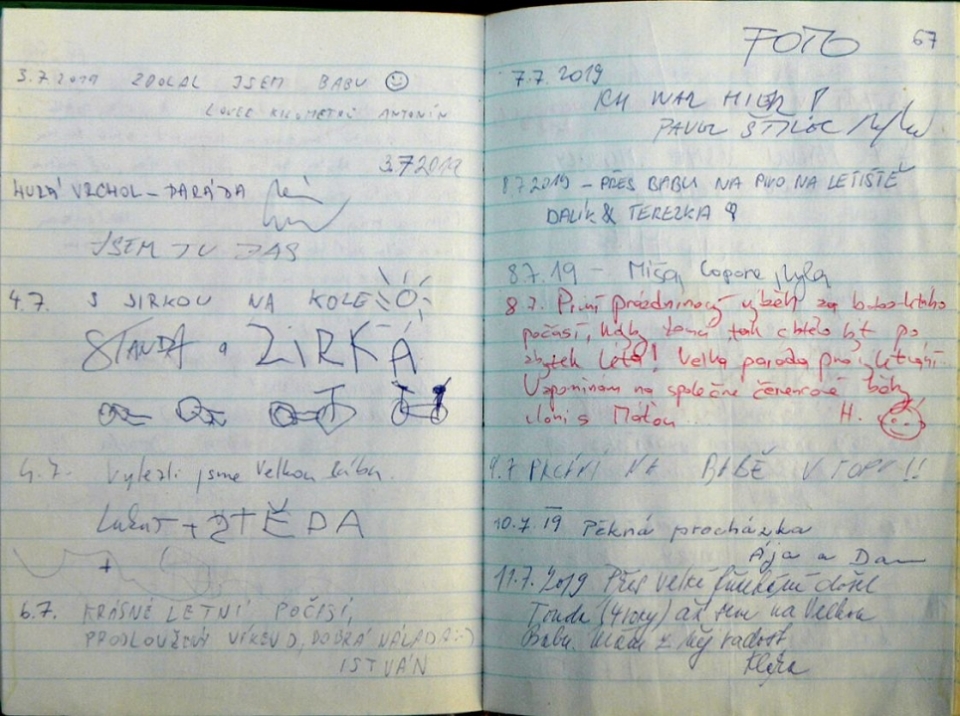 3.7.2019 ZDOLAL JSEM BABU
LOVEC KILOMETRŮ ANTONÍN
3.7.2019
HURÁ VRCHOL – PARÁDA
JSEM TU ZAS
4.7. S SIRKOU NA KOLE
STANDA a ZIRKÁ
4.7. Vylezli jsme Velkou bábu.
Lukáš + STĚDA
+
6.7. KRÁSNÉ LETNÍ POČASÍ,
PRODLOUŽENÝ VÍKEND, DOBRÁ NÁLADA :-)
ISTVÁN
FOTO 67
7.7.2019
ICH WAR HIER !
PAVOL
8.7.2019 – PŘES BABU NA PIVO NA LETIŠTĚ
DALÍK & TEREZKA
8.7.19 – Míša,
8.7. První prázdninový výběh za
počasí, kdy tak chtělo být po
zbytek léta! Velká paráda pro
Vzpomínám na společné červencové běhy
vloni s Máťou H.
9.7 NA BABĚ V TOPU !!
10.7.19 Pěkná procházka
Ája a Dan
11.7.2019 Přes velké došel
Tonda (4 roky) až sem na Velkou
Babu. Mám z něj radost
Klára